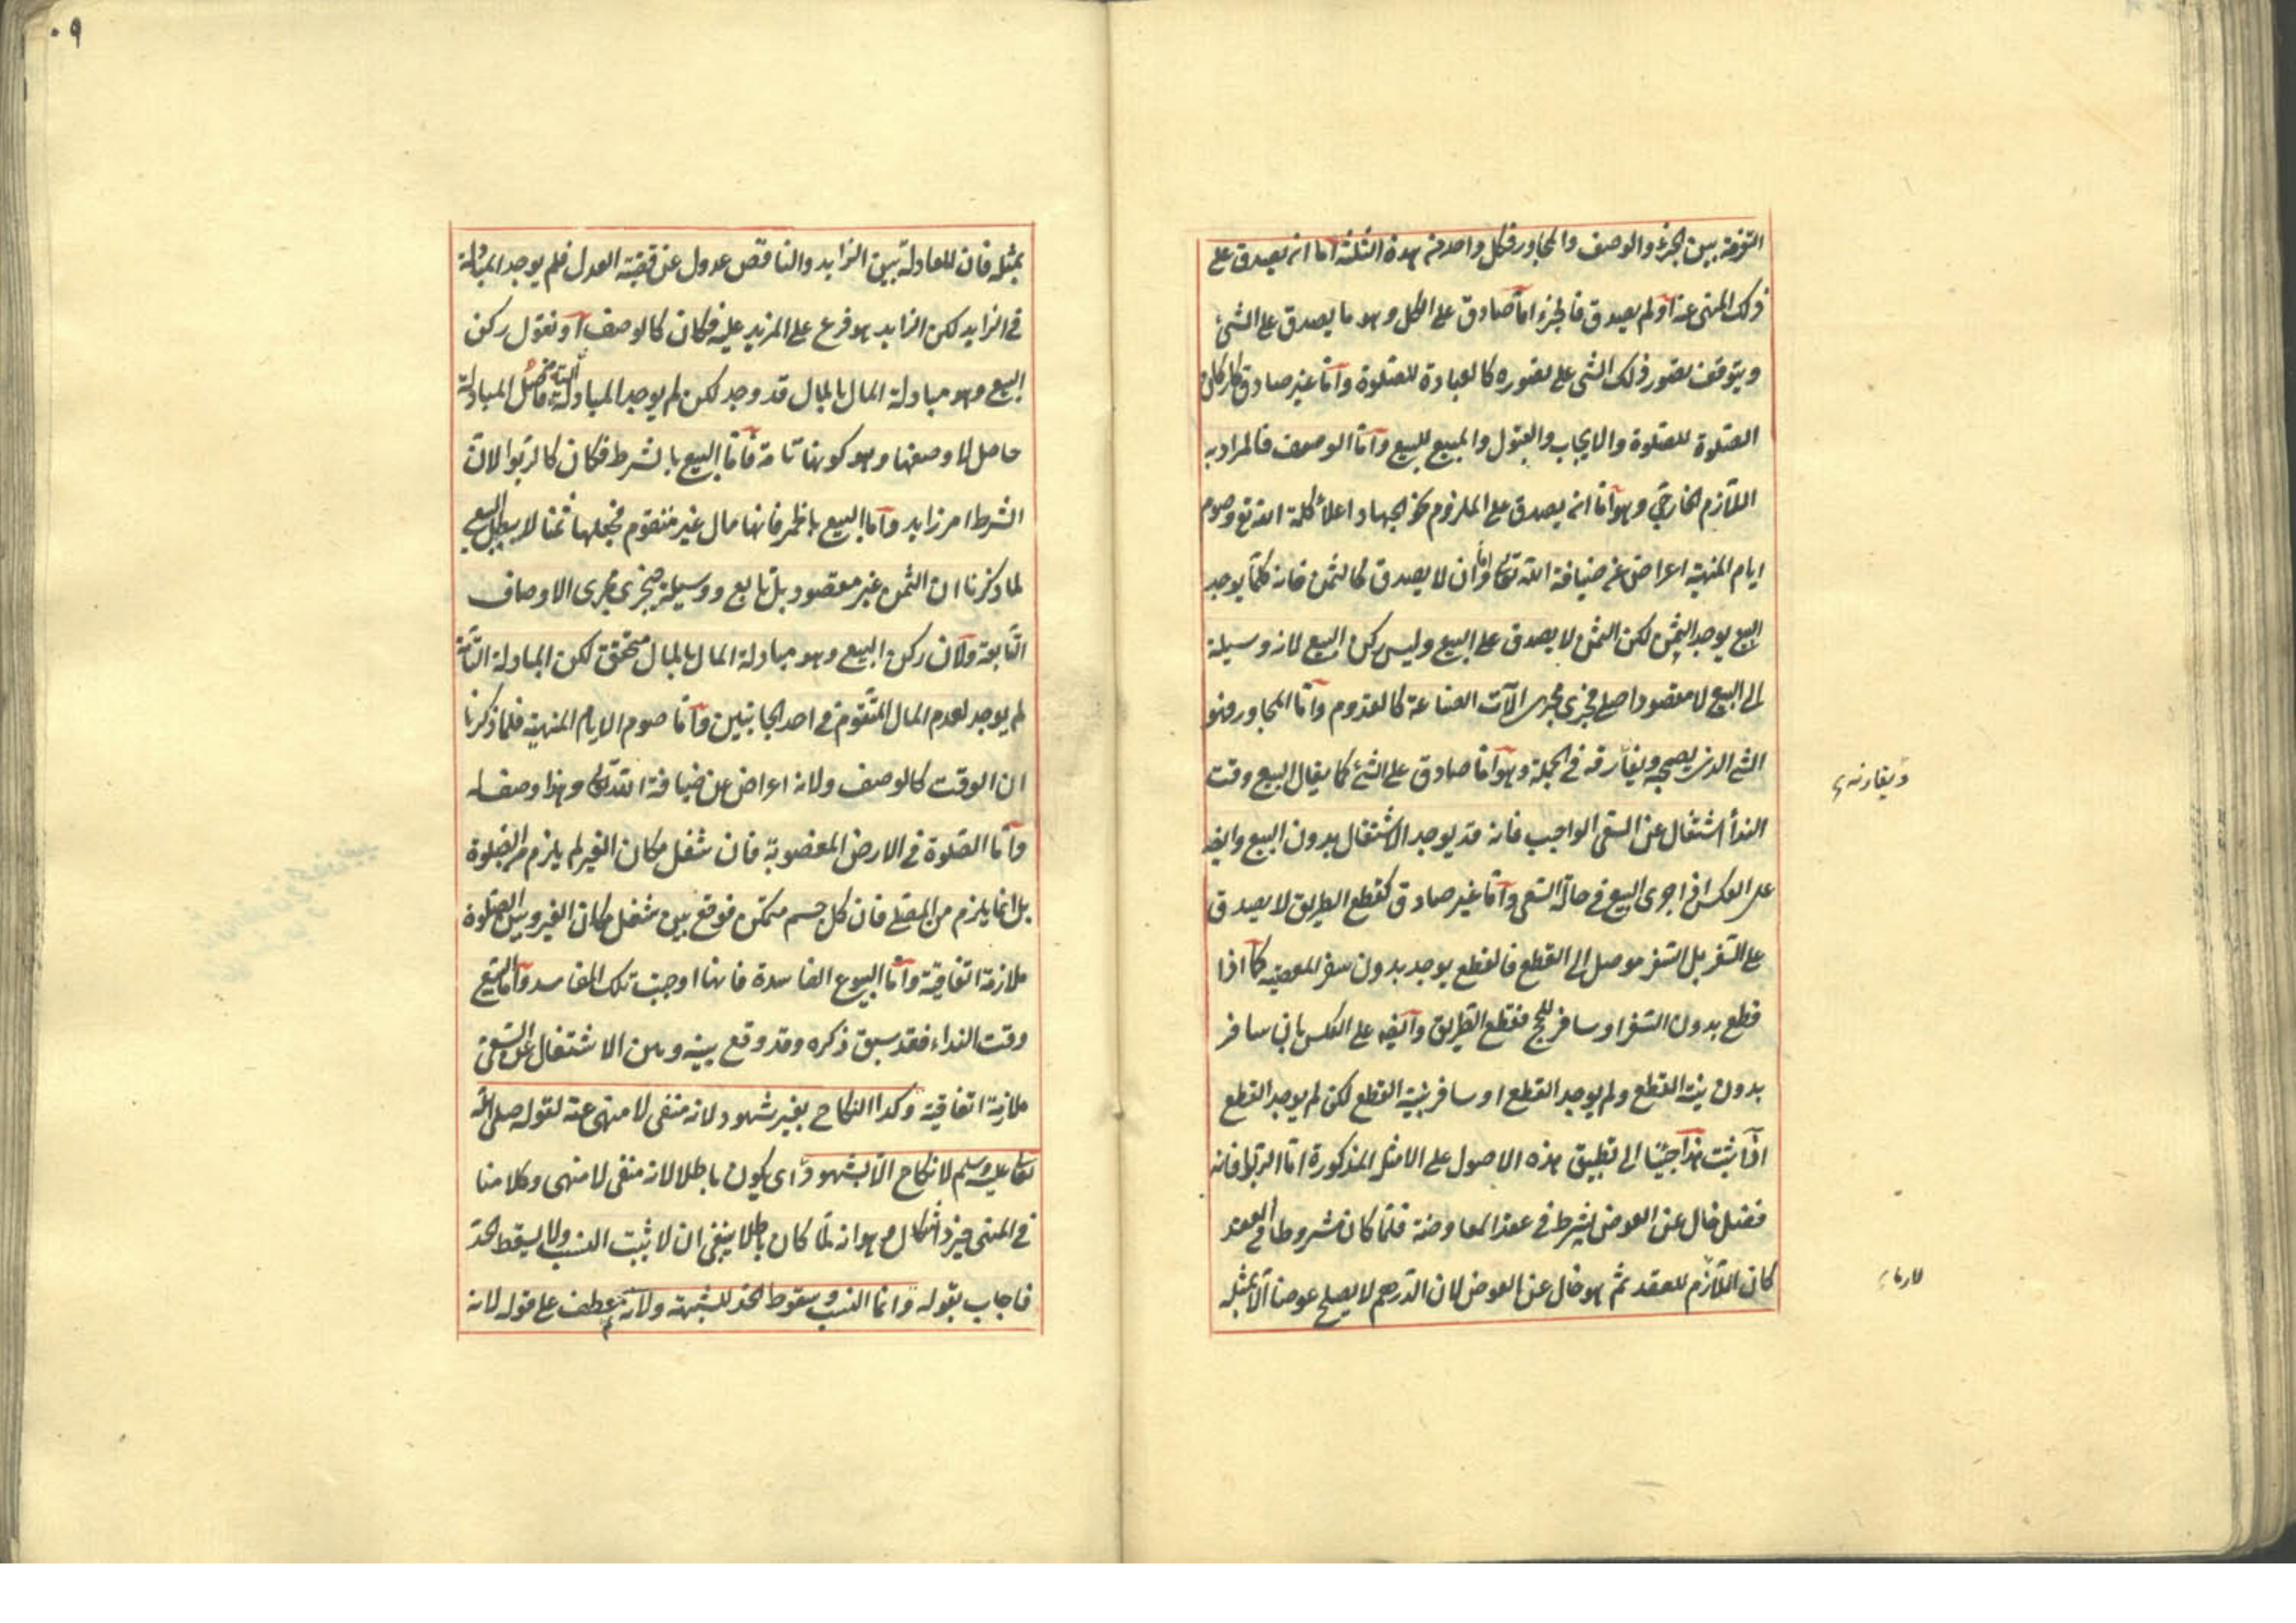 التفرقة بين الجزء والوصف والمجاور فكل واحد من هذه الثلثة اما انه يصدق على
ذلك المنهى عنه او لم يصدق فالجزء اما صادق على الكل وهو ما يصدق على الشئ
ويتوقف تصور ذلك الشئ على تصوره كالعبادة للصلوة واما غير صادق كاركان
الصلوة للصلوة والايجاب والقبول والمبيع للبيع واما الوصف فالمراد به
اللازم الخارجى وهو اما انه يصدق على الملزوم نحو الجهاد اعلاء كلمة الله تع وصوم
ايام المنهية اعراض عن ضيافة الله تعالى واما ان لا يصدق كالثمن فانه كلما يوجد
البيع يوجد الثمن لكن الثمن لا يصدق على البيع وليس ركن البيع لانه وسيلة
الى البيع لا مقصود اصلى فجرى مجرى الآت الصناعة كالقدوم واما المجاور فهو
الشئ الذى يصحبه ويفارقه فى الجملة وهو اما صادق على الشئ كما يقال البيع وقت
النداء اشتغال عن السعى الواجب فانه قد يوجد الاشتغال بدون البيع وايضا
على العكس اذا جرى البيع فى حالة السعى واما غير صادق كقطع الطريق لا يصدق
على السفر بل السفر موصل الى القطع فالقطع يوجد بدون سفر المعصية كما اذا
قطع بدون السفر او سافر للحج فقطع الطريق وايضا على العكس بان سافر
بدون نية القطع ولم يوجد القطع او سافر بنية القطع لكن لم يوجد القطع
اذا ثبت هذا جئنا الى تطبيق هذه الاصول على الامثلة المذكورة اما الربوا فانه
فضل خال عن العوض شرط فى عقد المعاوضة فلما كان مشروطا فى العقد
كان اللازم للعقد ثم هو خال عن العوض لان الدرهم لا يصلح عوضا الا بمثله
ويقارنه
لازما
٩٠
بمثله فان المعادلة بين الزايد والناقص عدول عن قضية العدل فلم يوجد المبادلة
فى الزايد لكن الزايد هو فرع على المزيد عليه فكان كالوصف او نقول ركن
البيع وهو مبادلة المال بالمال قد وجد لكن لم يوجد المبادلة التامة فاصل المبادلة
حاصل لا وصفها وهو كونها تامة فاما البيع بالشرط فكان كالربوا لان
الشرط امر زايد واما البيع بالخمر فانها مال غير متقوم فجعلها ثمنا لا يبطل البيع
لما ذكرنا ان الثمن غير مقصود بل تابع ووسيلة فجرى مجرى الاوصاف
التابعة ولان ركن البيع وهو مبادلة المال بالمال متحقق لكن المبادلة التامة
لم يوجد لعدم المال المتقوم فى احد الجانبين واما صوم الايام المنهية فلما ذكرنا
ان الوقت كالوصف ولانه اعراض عن ضيافة الله تعالى وهذا وصف له
واما الصلوة فى الارض المغصوبة فان شغل مكان الغير لم يلزم من الصلوة
بل انما يلزم من المصلى فان كل جسم متمكن فوقع بين شغل مكان الغير وبين الصلوة
ملازمة اتفاقية واما البيوع الفاسدة فانها اوجبت تلك المفاسد واما البيع
وقت النداء فقد سبق ذكره وقد وقع بينه وبين الاشتغال عن السعى
ملازمة اتفاقية وكذا النكاح بغير شهود لانه منفى لا منهى عنه لقوله صلى الله
تعالى عليه وسلم لا نكاح الا بشهود اى يكون باطلا لانه منفى لا منهى وكلامنا
فى المنهى فيرد اشكال وهو انه لما كان باطلا ينبغى ان لا يثبت النسب ولا يسقط الحد
فاجاب بقوله وانما النسب وسقوط الحد للشبهة ولانه عطف على قوله لانه